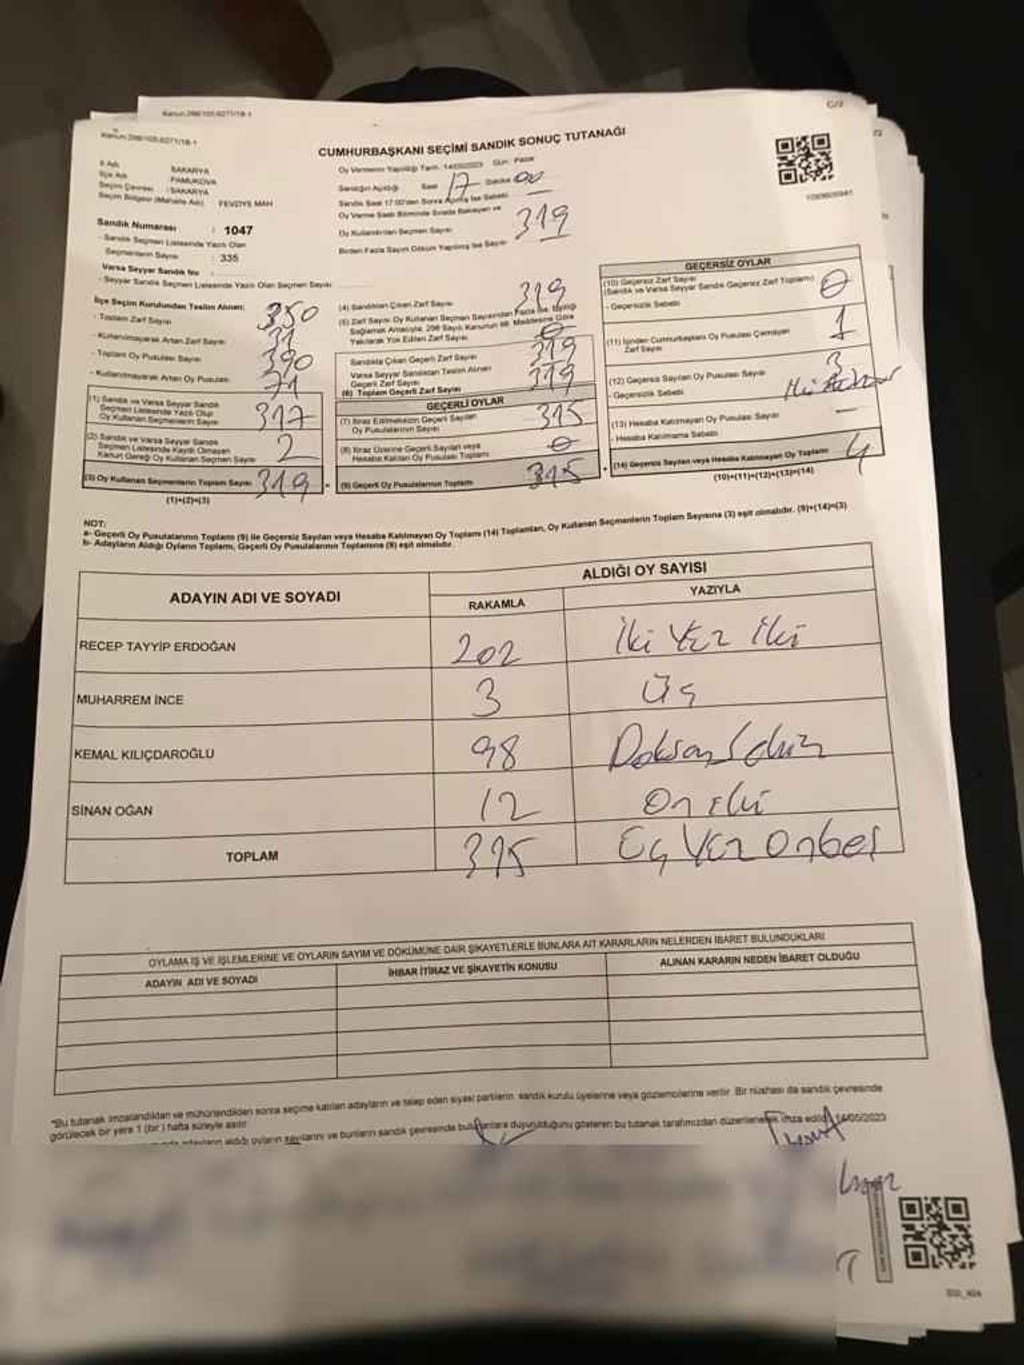 Kanun:298/105,6271/18-1
C/2
Kanun:298/105,6271/18-1
CUMHURBAŞKANI SEÇİMİ SANDIK SONUÇ TUTANAĞI
İl Adı SAKARYA
İlçe Adı PAMUKOVA
Seçim Çevresi : SAKARYA
Seçim Bölgesi (Mahalle Adı) FEVZİYE MAH
Sandık Numarası : 1047
- Sandık Seçmen Listesinde Yazılı Olan
Seçmenlerin Sayısı : 335
Varsa Seyyar Sandık No :
- Seyyar Sandık Seçmen Listesinde Yazılı Olan Seçmen Sayısı
Oy Vermenin Yapıldığı Tarih: 14/05/2023 Gün: Pazar
Sandığın Açıldığı Saat 17 Dakika 00
Sandık Saat 17:00'den Sonra Açılmış İse Sebebi
Oy Verme Saati Bitiminde Sırada Bekleyen ve
Oy Kullandırılan Seçmen Sayısı 319
Birden Fazla Sayım Döküm Yapılmış İse Sayısı
İlçe Seçim Kurulundan Teslim Alınan:
- Toplam Zarf Sayısı 350
- Kullanılmayarak Artan Zarf Sayısı 31
- Toplam Oy Pusulası Sayısı 390
- Kullanılmayarak Artan Oy Pusulası 71
(1) Sandık ve Varsa Seyyar Sandık
Seçmen Listesinde Yazılı Olup
Oy Kullanan Seçmenlerin Sayısı 317
(2) Sandık ve Varsa Seyyar Sandık
Seçmen Listesinde Kayıtlı Olmayan
Kanun Gereği Oy Kullanan Seçmen Sayısı 2
(3) Oy Kullanan Seçmenlerin Toplam Sayısı 319
(1)+(2)=(3)
(4) Sandıktan Çıkan Zarf Sayısı 319
(5) Zarf Sayısı Oy Kullanan Seçmen Sayısından Fazla İse, Eşitliği
Sağlamak Amacıyla, 298 Sayılı Kanunun 98. Maddesine Göre
Yakılarak Yok Edilen Zarf Sayısı 0
Sandıkta Çıkan Geçerli Zarf Sayısı 319
Varsa Seyyar Sandıktan Teslim Alınan
Geçerli Zarf Sayısı
(6) Toplam Geçerli Zarf Sayısı 319
GEÇERLİ OYLAR
(7) İtiraz Edilmeksizin Geçerli Sayılan
Oy Pusulalarının Sayısı 315
(8) İtiraz Üzerine Geçerli Sayılan veya
Hesaba Katılan Oy Pusulası Toplamı 0
(9) Geçerli Oy Pusulalarının Toplamı 315
GEÇERSİZ OYLAR
(10) Geçersiz Zarf Sayısı
(Sandık ve Varsa Seyyar Sandık Geçersiz Zarf Toplamı) 0
- Geçersizlik Sebebi
(11) İçinden Cumhurbaşkanı Oy Pusulası Çıkmayan
Zarf Sayısı 1
(12) Geçersiz Sayılan Oy Pusulası Sayısı 3
- Geçersizlik Sebebi
(13) Hesaba Katılmayan Oy Pusulası Sayısı —
- Hesaba Katılmama Sebebi
(14) Geçersiz Sayılan veya Hesaba Katılmayan Oy Toplamı 4
(10)+(11)+(12)+(13)=(14)
NOT:
a- Geçerli Oy Pusulalarının Toplamı (9) ile Geçersiz Sayılan veya Hesaba Katılmayan Oy Toplamı (14) Toplamları, Oy Kullanan Seçmenlerin Toplam Sayısına (3) eşit olmalıdır. (9)+(14)=(3)
b- Adayların Aldığı Oyların Toplamı, Geçerli Oy Pusulalarının Toplamına (9) eşit olmalıdır.
ADAYIN ADI VE SOYADI
ALDIĞI OY SAYISI
RAKAMLA YAZIYLA
RECEP TAYYİP ERDOĞAN 202 İki Yüz İki
MUHARREM İNCE 3 Üç
KEMAL KILIÇDAROĞLU 98 Doksan Sekiz
SİNAN OĞAN 12 On iki
TOPLAM 315 Üç Yüz Onbeş
OYLAMA İŞ VE İŞLEMLERİNE VE OYLARIN SAYIM VE DÖKÜMÜNE DAİR ŞİKAYETLERLE BUNLARA AİT KARARLARIN NELERDEN İBARET BULUNDUKLARI
ADAYIN ADI VE SOYADI İHBAR İTİRAZ VE ŞİKAYETİN KONUSU ALINAN KARARIN NEDEN İBARET OLDUĞU
*Bu tutanak imzalandıktan ve mühürlendikten sonra seçime katılan adayların ve talep eden siyasi partilerin sandık kurulu üyelerine veya gözlemcilerine verilir. Bir nüshası da sandık çevresinde
görülecek bir yere 1 (bir ) hafta süreyle asılır.
adayların aldığı oyların sayılarını ve bunların sandık çevresinde bulunanlara duyurulduğunu gösteren bu tutanak tarafımızdan düzenlenerek imza edildi. 14/05/2023